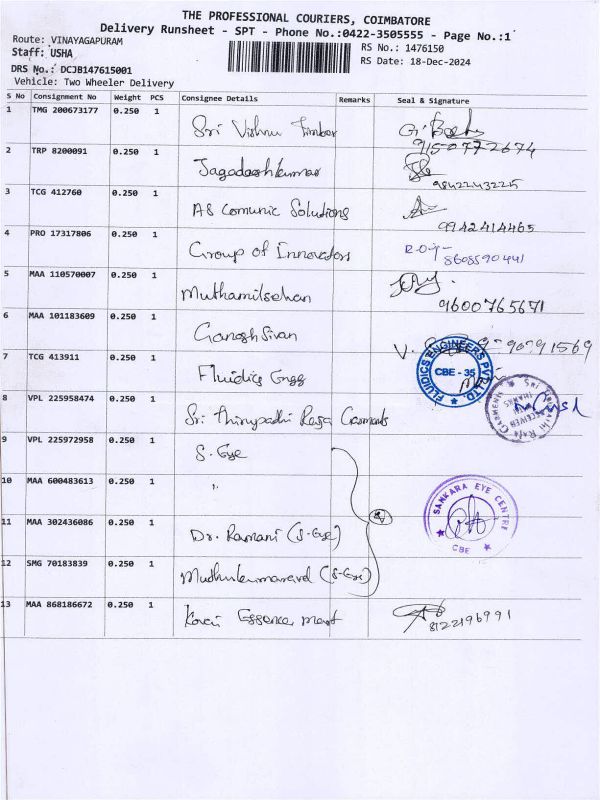 THE PROFESSIONAL COURIERS, COIMBATORE
Delivery Runsheet - SPT - Phone No.:0422-3505555 - Page No.:1
Route: VINAYAGAPURAM
RS No.: 1476150
Staff: USHA
RS Date: 18-Dec-2024
DRS No.: DCJB147615001
Vehicle: Two Wheeler Delivery
S No Consignment No Weight PCS Consignee Details Remarks Seal & Signature
1 TMG 200673177 0.250 1 Sri Vishnu Timber
9150772674
2 TRP 8200091 0.250 1 Jagadeeshkumar
9842243225
3 TCG 412760 0.250 1 AS Comunic Solutions
9942414465
4 PRO 17317806 0.250 1 Group of Innovators
8608590441
5 MAA 110570007 0.250 1 Muthamilselvan
9600765671
6 MAA 101183609 0.250 1 Ganesh Sivan
7 TCG 413911 0.250 1 Fluidics Engg
FLUIDICS ENGINEERS PVT LTD.
CBE - 35
8 VPL 225958474 0.250 1 Sri Thirupathi Raja Garments
SRI THIRUPATHI RAJA GARMENTS
RECEIVED
WITH
THANKS
9 VPL 225972958 0.250 1 S. Eye
10 MAA 600483613 0.250 1 "
SANKARA EYE CENTRE
CBE
11 MAA 302436086 0.250 1 Dr. Ramani (S-Eye)
12 SMG 70183839 0.250 1 Muthukumaravel (S-Eye)
13 MAA 868186672 0.250 1 Kovai Essence Mart
8122196991